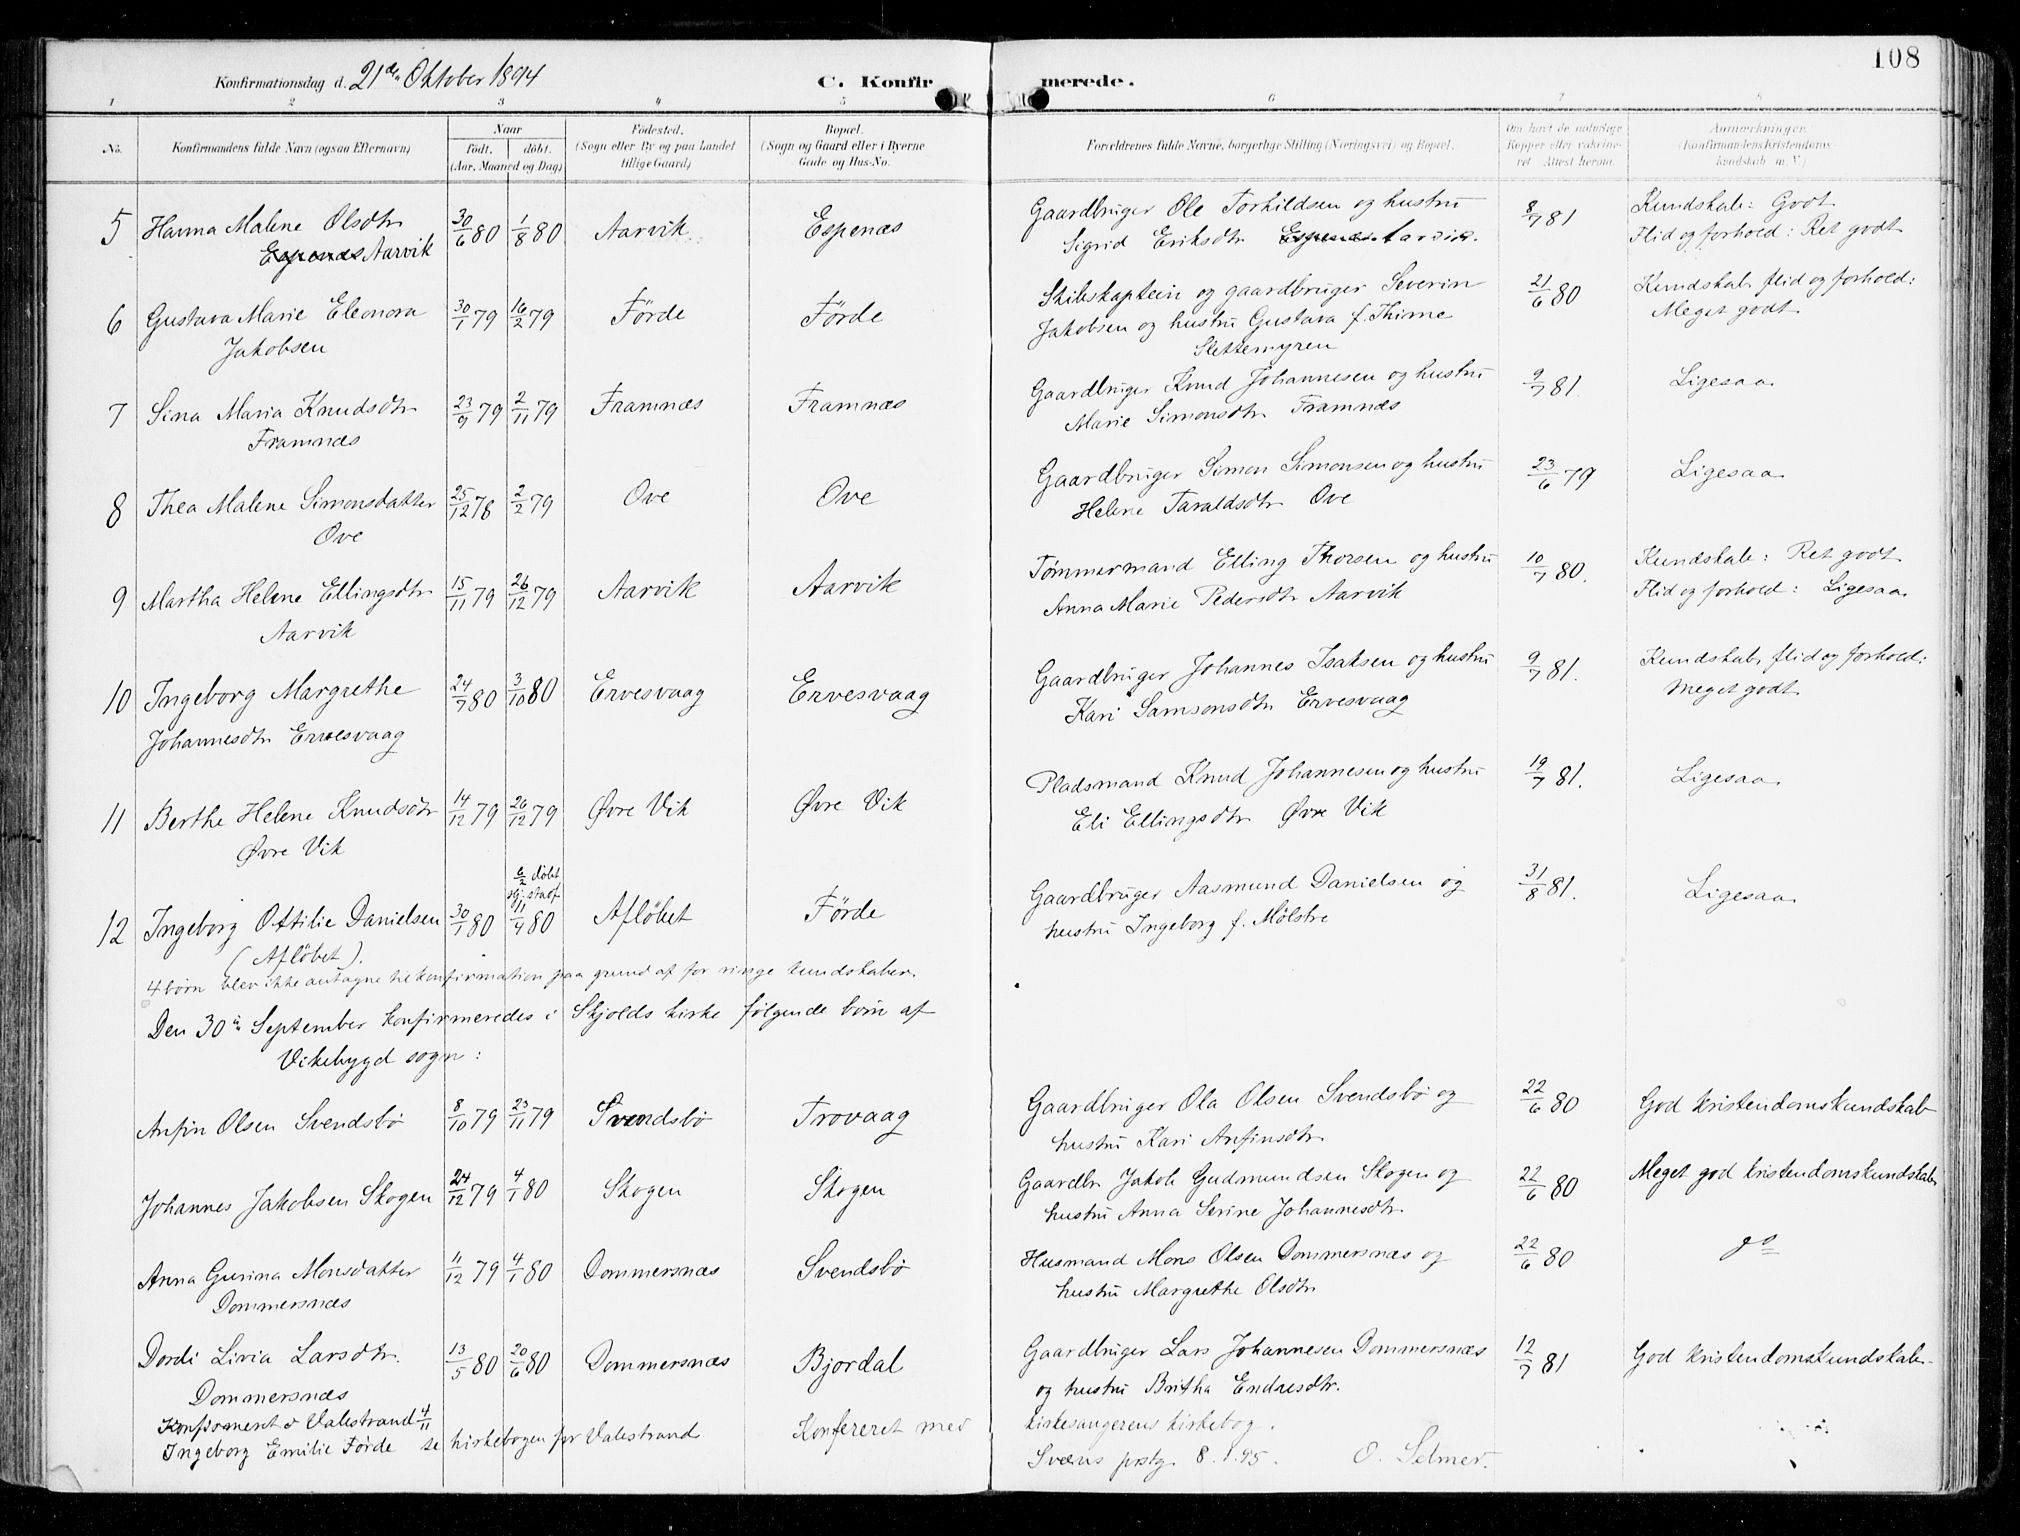 108
Konfirmationsdag d. 21de Oktober 1894
C. Konfirmerede.
1 2 3 4 5 6 7 8
No. Konfirmandens fulde Navn (ogsaa Efternavn) Naar født. døbt. (Aar, Maaned og Dag) Fødested. (Sogn eller By og paa Landet tillige Gaard) Bopæl. (Sogn og Gaard eller i Byerne Gade og Hus-No. Forældrenes fulde Navne, borgerlige Stilling (Næringsvei) og Bopæl. Om havt de naturlige Kopper eller vakcineret. Attest herom. Anmærkninger. (Konfirmandens kristendomskundskab m. V.)
5 Hanna Malene Olsdtr 30/6 80 1/8 80 Aarvik Espenæs Gaardbruger Ole Torkildsen og hustru 8/7 81 Kundskab: Godt
Espenæs Aarvik Sigrid Eriksdtr Espenæs Aarvik. Flid og forhold: Ret godt
6 Gustava Marie Eleonora 30/1 79 16/2 79 Førde Førde Skibskaptein og gaardbruger Severin 21/6 80 Kundskab, flid og forhold:
Jakobsen Jakobsen og hustru Gustava f. Thirne Meget godt
Slettemyren
7 Sina Maria Knudsdtr 23/9 79 2/11 79 Framnæs Framnæs Gaardbruger Knud Johannesen og hustru 9/7 81. Ligesaa
Framnæs Marie Simonsdtr Framnæs
8 Thea Malene Simonsdatter 25/12 78 2/2 79 Ove Ove Gaardbruger Simon Simonsen og hustru 23/6 79 Ligesaa
Ove Helene Taraldsdtr Ove
9 Martha Helene Ellingsdtr 15/11 79 26/12 79 Aarvik Aarvik Tømmermand Elling Thorsen og hustru 10/7 80. Kundskab: Ret godt
Aarvik Anna Marie Pedersdtr Aarvik Flid og forhold: Ligesaa
10 Ingeborg Margrethe 24/7 80 3/10 80 Ervesvaag Ervesvaag Gaardbruger Johannes Isaksen og hustru 9/7 81. Kundskab, flid og forhold:
Johannesdtr Ervesvaag Kari Samsonsdtr Ervesvaag Meget godt
11 Berthe Helene Knudsdtr 14/12 79 26/12 79 Øvre Vik Øvre Vik Pladsmand Knud Johannesen og hustru 19/7 81. Ligesaa
Øvre Vik Eli Ellingsdtr Øvre Vik
6/2 døbt
12 Ingeborg Ottilie Danielsen 30/1 80 11/4 80 Afløbet Førde Gaardbruger Aasmund Danielsen og 31/8 81. Ligesaa
(Afløbet). hustru Ingeborg f. Mølstre
4 børn blev ikke antagne til konfirmation paa grund af for ringe kundskaber.
Den 30te September konfirmeredes i Skjolds kirke følgende børn af
Vikebygd sogn:
Anfin Olsen Svendsbø 8/10 79 23/11 79 Svendsbø Trovaag Gaardbruger Ola Olsen Svendsbø og 22/6 80 God kristendomskundskab
hustru Kari Anfinsdtr
Johannes Jakobsen Skogen 24/12 79 4/1 80 Skogen Skogen Gaardbr Jakob Gudmundsen Skogen og 22/6 80 Meget god kristendomskundskab
hustru Anna Serine Johannesdtr
Anna Gurina Monsdatter 11/12 79 4/1 80 Dommersnæs Svendsbø Husmand Mons Olsen Dommersnæs og 22/6 80 do
Dommersnæs hustru Margrethe Olsdtr
Dordi Livia Larsdtr. 13/5 80 20/6 80 Dommersnæs Bjordal Gaardbruger Lars Johannesen Dommersnæs 12/7 81 God kristendomskundskab
Dommersnæs og hustru Britha Endresdtr.
Konfirmeret i Valestrand 4/11 Konfereret med kirkesangerens kirkebog.
Ingeborg Emilie Førde se kirkebogen for Valestrand Sveens prstg. 8.1.95. O. Selmer.